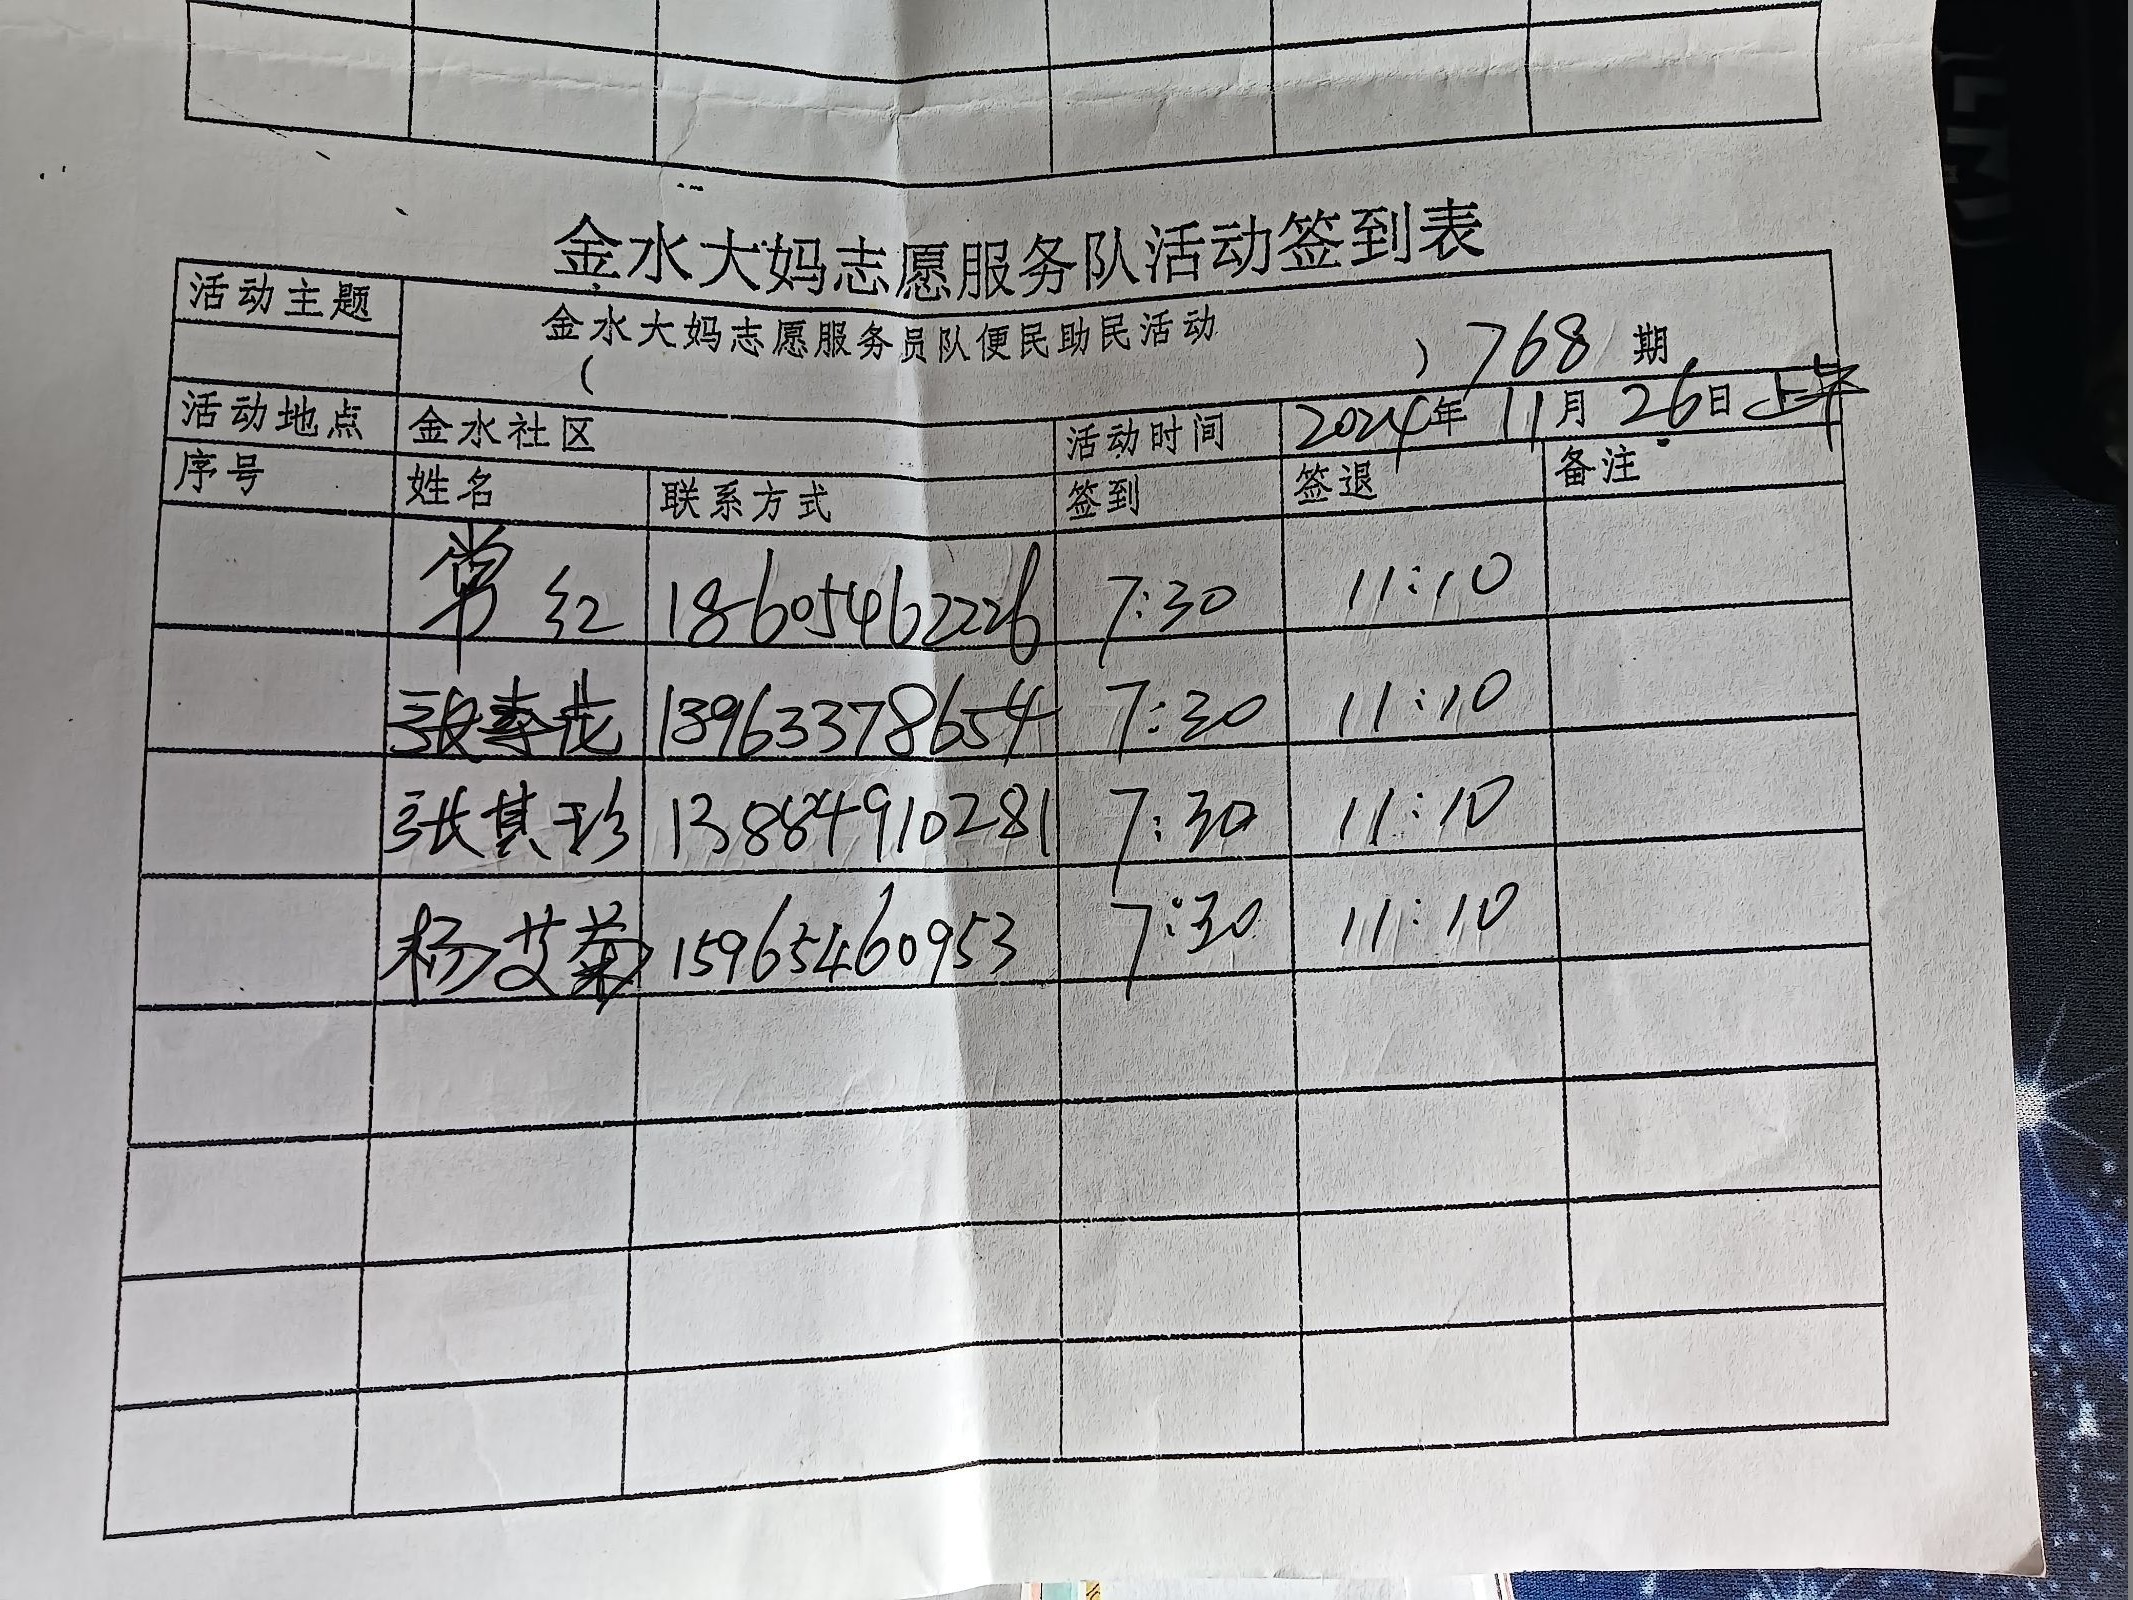 金水大妈志愿服务队活动签到表
活动主题
金水大妈志愿服务员队便民助民活动
( ) 768 期
活动地点 金水社区 活动时间 2024年 11月 26日 上午
序号 姓名 联系方式 签到 签退 备注
常红 18605462226 7:30 11:10
张春花 13963378654 7:30 11:10
张其珍 13884910281 7:30 11:10
杨艾菊 15965460953 7:30 11:10